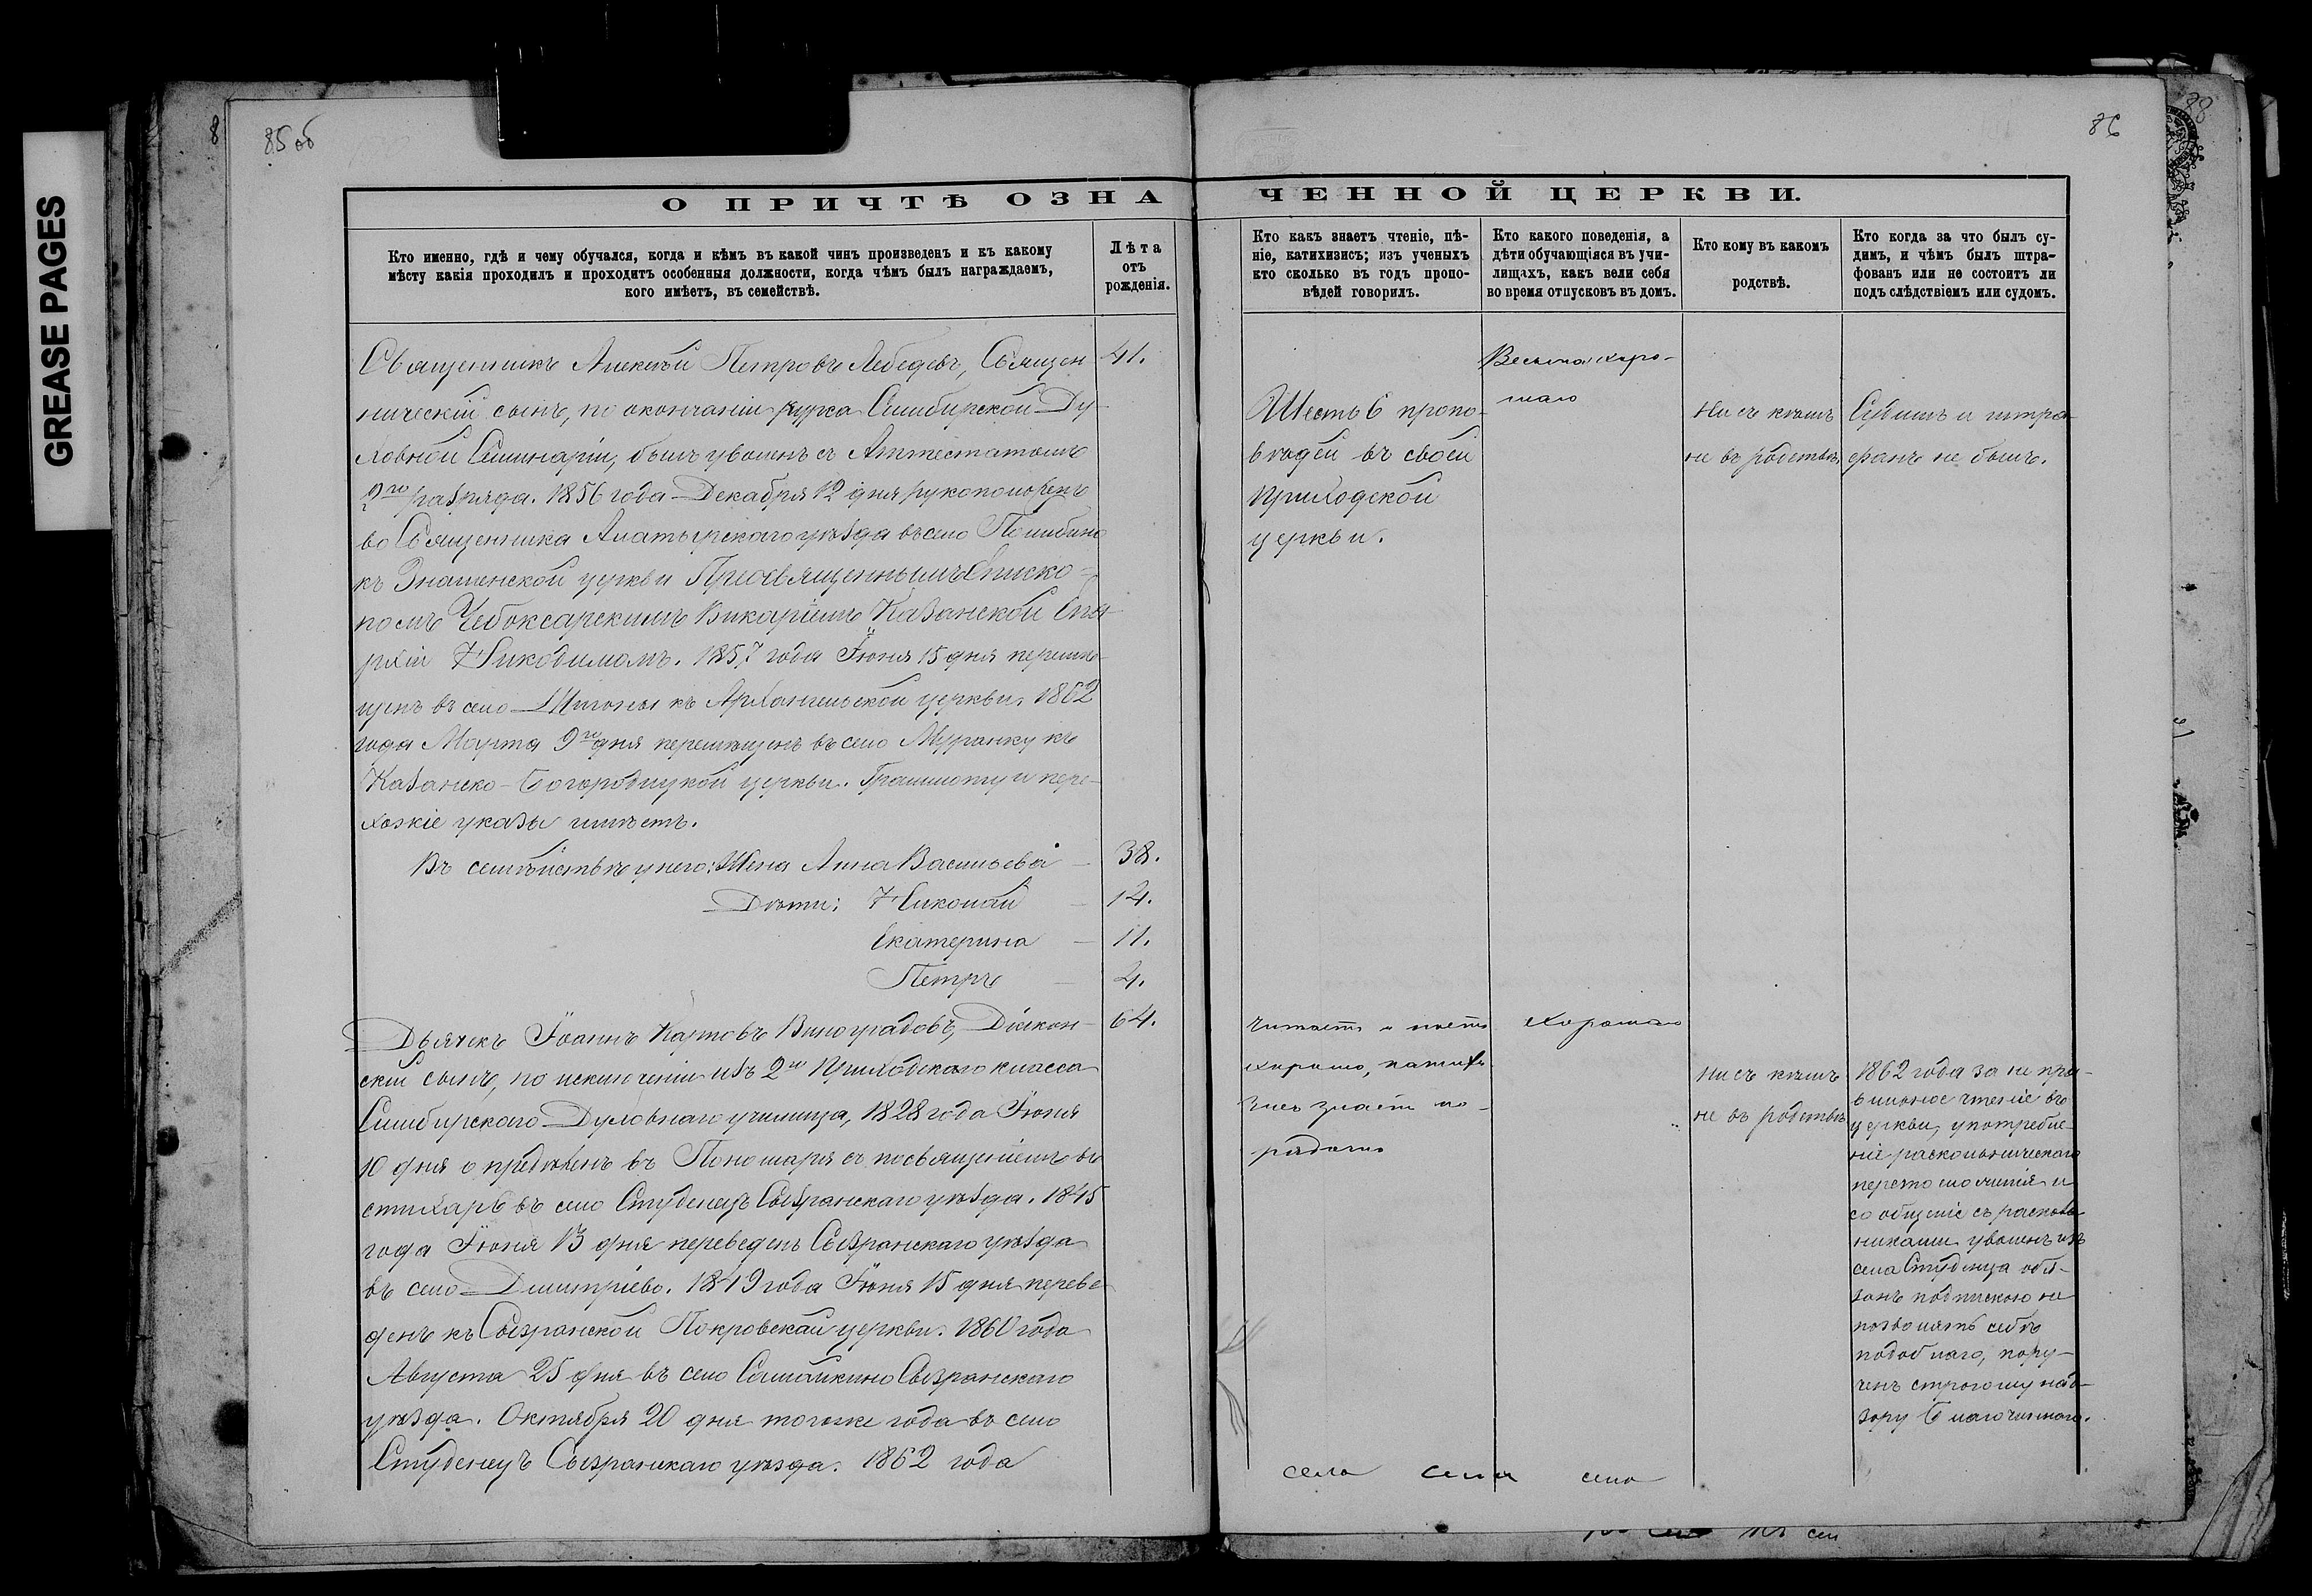 GREASE PAGES
85 об
86
88
О ПРИЧТѢ ОЗНА
ЧЕННОЙ ЦЕРКВИ.
Кто именно, гдѣ и чему обучался, когда и кѣмъ въ какой чинъ произведенъ и къ какому
мѣсту какія проходилъ и проходитъ особенныя должности, когда чѣмъ былъ награждаемъ,
кого имѣетъ, въ семействѣ.
Лѣта
отъ
рожденія.
Кто какъ знаетъ чтеніе, пѣ-
ніе, катихизисъ; изъ ученыхъ
кто сколько въ годъ пропо-
вѣдей говорилъ.
Кто какого поведенія, а
дѣти обучающіяся въ учи-
лищахъ, какъ вели себя
во время отпусковъ въ домъ.
Кто кому въ какомъ
родствѣ.
Кто когда за что былъ су-
димъ, и чѣмъ былъ штра-
фованъ или не состоитъ ли
подъ слѣдствіемъ или судомъ.
Священникъ Алексѣй Петровъ Лебедевъ, Священ 41.
ническій сынъ, по окончаніи курса Симбирской Ду-
ховной Семинаріи, былъ уволенъ съ Аттестатомъ
2го разряда. 1856 года Декабря 12 дня рукоположенъ
во Священника Алатырскаго уѣзда въ село Помибино
къ Знаменской церкви Преосвященнымъ Еписко-
помъ Чебоксарскимъ Викаріемъ Казанской Епа-
рхіи Никодимомъ. 1857 года Іюня 15 дня перемѣ-
щенъ въ село Шигоны къ Архангельской церкви. 1862
года Марта 9го дня перемѣщенъ въ село Муранку къ
Казанско-Богородицкой церкви. Граммоту и пере-
хожіе указы имѣетъ.
Въ семѣйствѣ у него: Жена Анна Васильева 38.
Дѣти: Николай 14.
Екатерина 11.
Петръ 4.
Дьячекъ Іоаннъ Карповъ Виноградовъ, Діакон- 64.
скій сынъ, по исключеніи изъ 2го Приходскаго класса
Симбирскаго Духовнаго училища, 1828 года Іюня
10 дня опредѣленъ въ Пономаря съ посвященіемъ въ
стихарь въ село Студенецъ Сызранскаго уѣзда. 1845
года Іюня 13 дня переведенъ Сызранскаго уѣзда
въ село Димитріево. 1849 года Іюня 15 дня переве
денъ къ Сызранской Покровской церкви. 1860 года
Августа 25 дня въ село Самайкино Сызранскаго
уѣзда. Октября 20 дня тогоже года въ село
Студенецъ Сызранскаго уѣзда. 1862 года
Шесть 6 пропо-
вѣдей въ своей
приходской
церкви.
Весьма хоро-
шаго
ни съ кѣмъ
не въ родствѣ
Судимъ и штра-
фанъ не былъ.
Читаетъ и поетъ
хорошо, катихи
зисъ знаетъ по-
рядочно
хорошаго
ни съ кѣмъ
не въ родствѣ
1862 года за не пра-
вильное чтеніе въ
церкви, употребле-
ніе раскольническаго
перстосложенія и
сообщеніе съ расколь
никами уволенъ изъ
села Студенца обя-
занъ подпискою не
позволять себѣ
подобнаго, пору-
ченъ строгому над-
зору Благочиннаго.
село села село